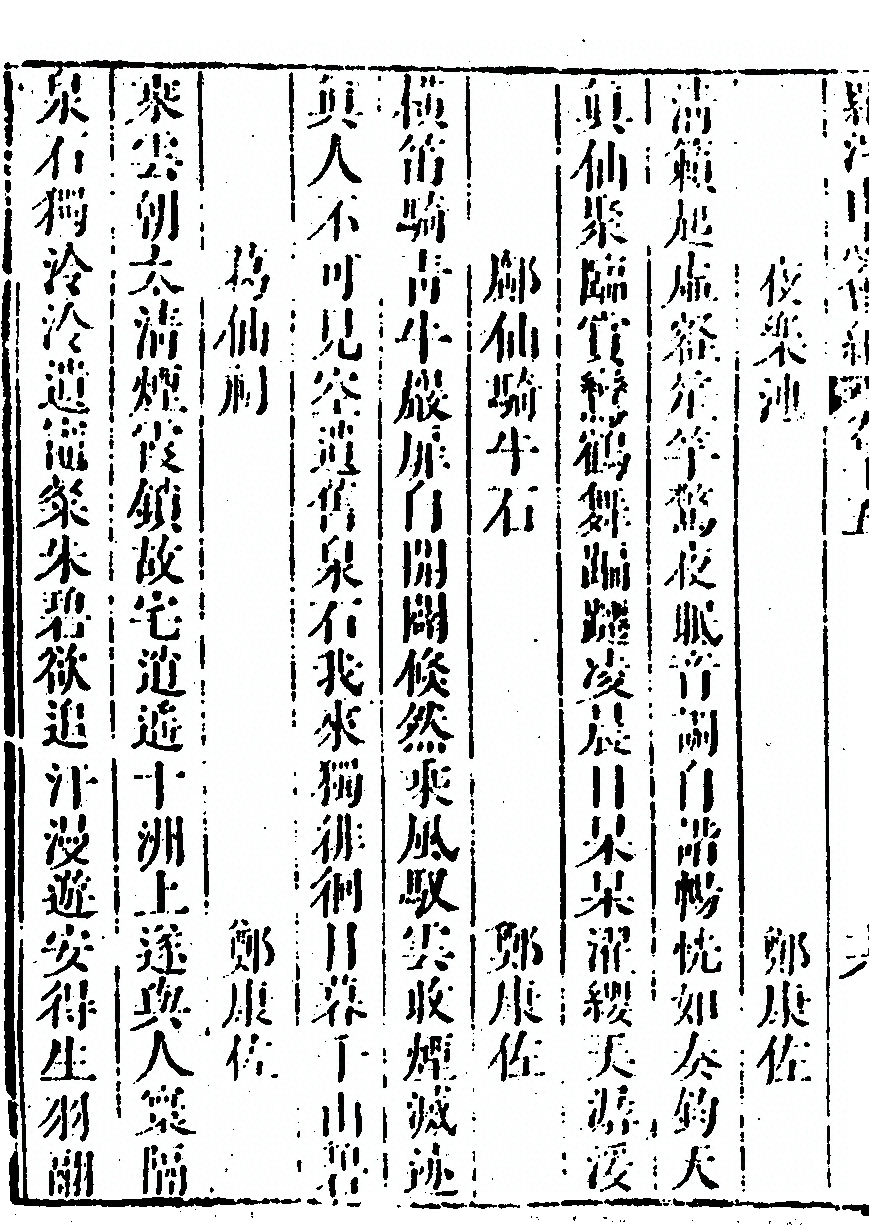 夜樂池 鄭康佐
清籟起虛谷笙竽驚夜眠音調自諧暢恍如奏鈞天
真仙聚臨賞鸞鶴舞蹁躚凌晨日杲杲濯纓天潺湲
鄺仙騎牛石 鄭康佐
橫笛騎青牛巖扉自開闢倐然乘風馭雲收煙滅迹
真人不可見空遺舊泉石我來獨徘徊日暮千山碧
葛仙祠 鄭康佐
乘雲朝太清煙霞鎖故宅逍遙十洲上遂與人寰隔
泉石獨泠泠遺竈粲朱碧欲追汗漫遊安得生羽翮